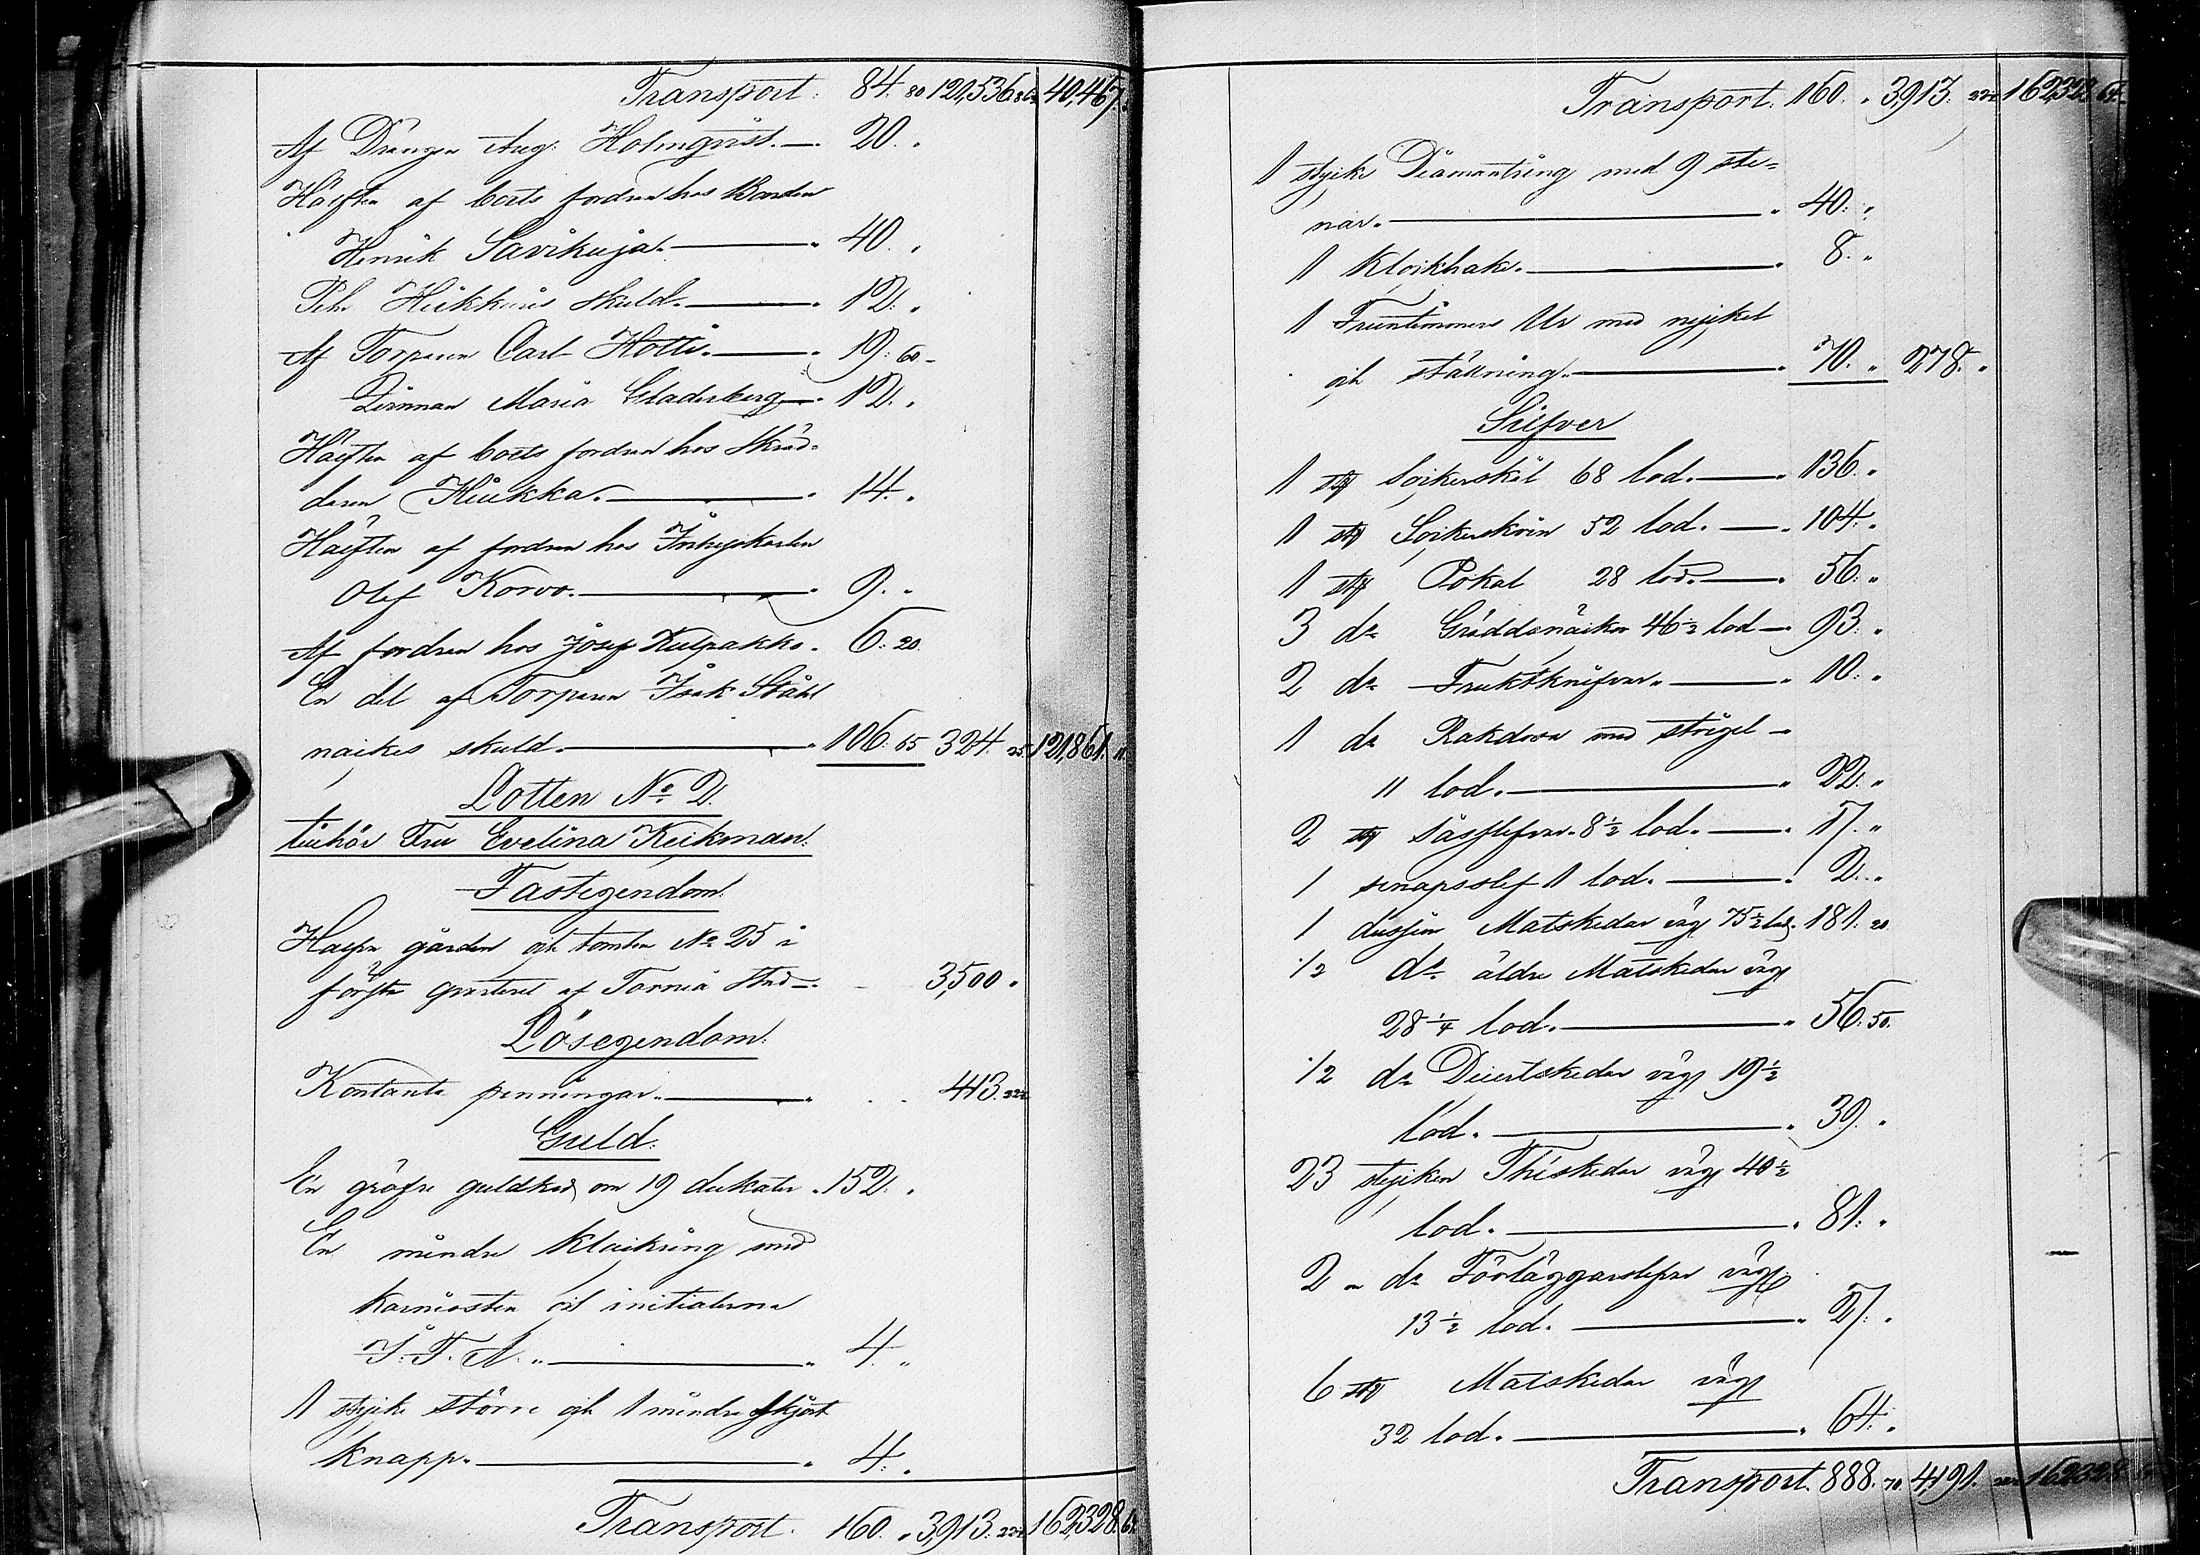 Transport. 84. 80 121,536 86 40,467.
Af Drängen Aug: Holmqvist. — 20. "
Hälften af borts fordran hos Bonden
Henrik Savikuja. — 40. "
Pehr Hiukkais skuld. — 12. "
Af Torparen Carl Hotti. — 19. 60
Pernman Maria Gladerberg — 12. "
Hälften af borts fordran hos Skräd-
daren Kiukka. — 14. "
Hälften af fordran hos Inhyskarlen
Olof Korvo. — 9. "
Af fordran hos Josef Kulpakko. 6. 20
En del af Torparen Isak Ståhl
näckes skuld. — 106. 65 324. 25 121,861. 11
Lotten No 2.
tillhör Fru Evelina Keckman.
Fastegendom.
Halfva gården och tomten No 25 i
första qvarteret af Torneå Stad — 3,500 "
Lösegendom.
Kontanta penningar. — 413. 22½
Guld.
En gröfre guldked om 19 dukater 152. "
En mindre klackring med
karniosten och initialerna
I. F. A. " — 4. "
1 stycke större och 1 mindre skjort
knapp. — 4. "
Transport. 160. " 3,913. 22½ 162,328. 64
Transport. 160. " 3,913. 22½ 162,328. 64
1 stycke Diamantring med 9 ste-
nar. — 40. "
1 Klockhake. — 8. "
1 Fruntimmers Ur med nyckel
och ställning. — 70. " 278. "
Silfver
1 st Sockerskål 68 lod. — 136. "
1 st Sockerskrin 52 lod. — 104. "
1 st Pokal 28 lod. — 56. "
3 do Gräddsnäckor 46½ lod — 93. "
2 do Fruktknifvar. — 10. "
1 do Rakdosa med strigel —
11 lod. — 22. "
2 st såsslefvar. 8½ lod. — 17. "
1 senapsslef 1 lod. — 2. "
1 dussin Matskedar väg 75½ lod. 181. 20
½ do äldre Matskedar väg
28¼ lod. — 56. 50.
½ do Dessertskedar väg 19½
lod. — 39. "
23 stycken Theskedar väg 40½
lod. — 81. "
2 " do Förläggarslefvar väg
13½ lod. — 27. "
6 st Matskedar väg
32 lod. — 64. "
Transport. 888. 70 4,191. 22½ 162,328. 64